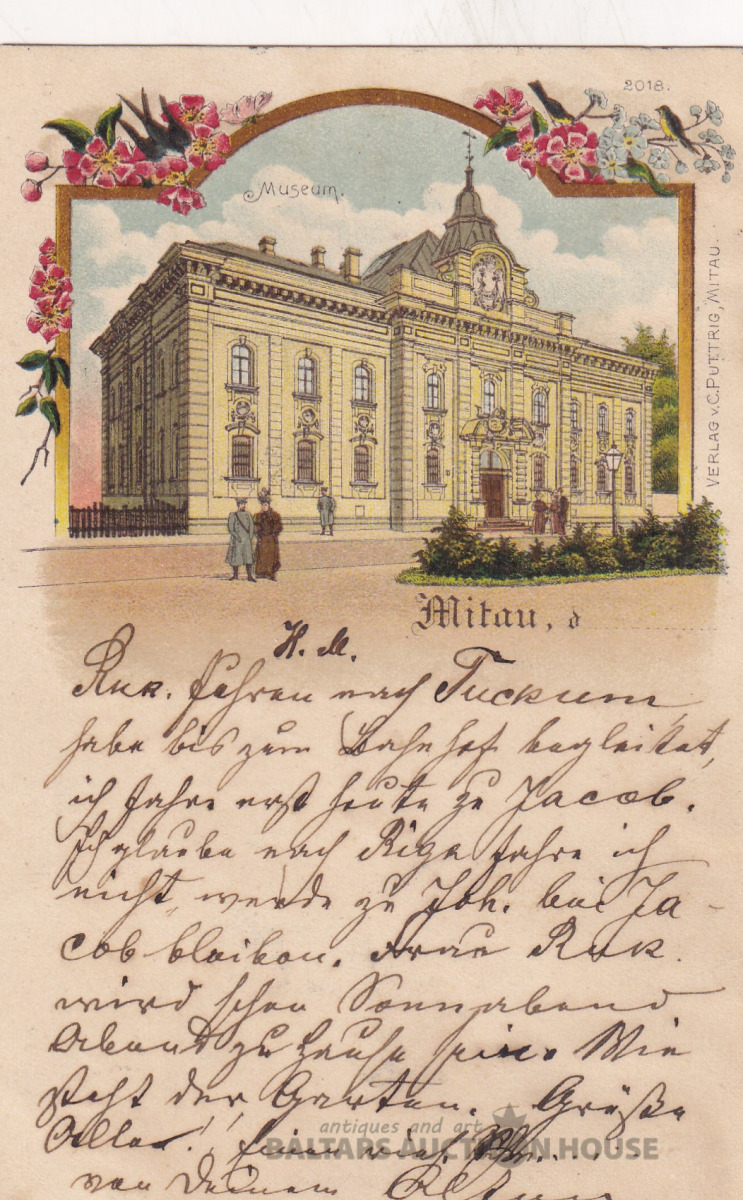 2018.
Museum.
VERLAG v. C. PUTTRIG, MITAU.
Mitau, d
H. M.
Ruk. fahren nach Tuckum,
habe bis zum Bahnhof begleitet,
ich fahre erst heute zu Jacob.
Ich glaube nach Riga fahre ich
nicht, werde zu Joh. bei Ja-
cob bleiben. Frau Ruk.
wird schon Sonnabend
Abend zu Hause sein. Wie
steht der Garten. Grüße
Alle!
von Deinem
antiques and art
BALTARS AUCTION HOUSE